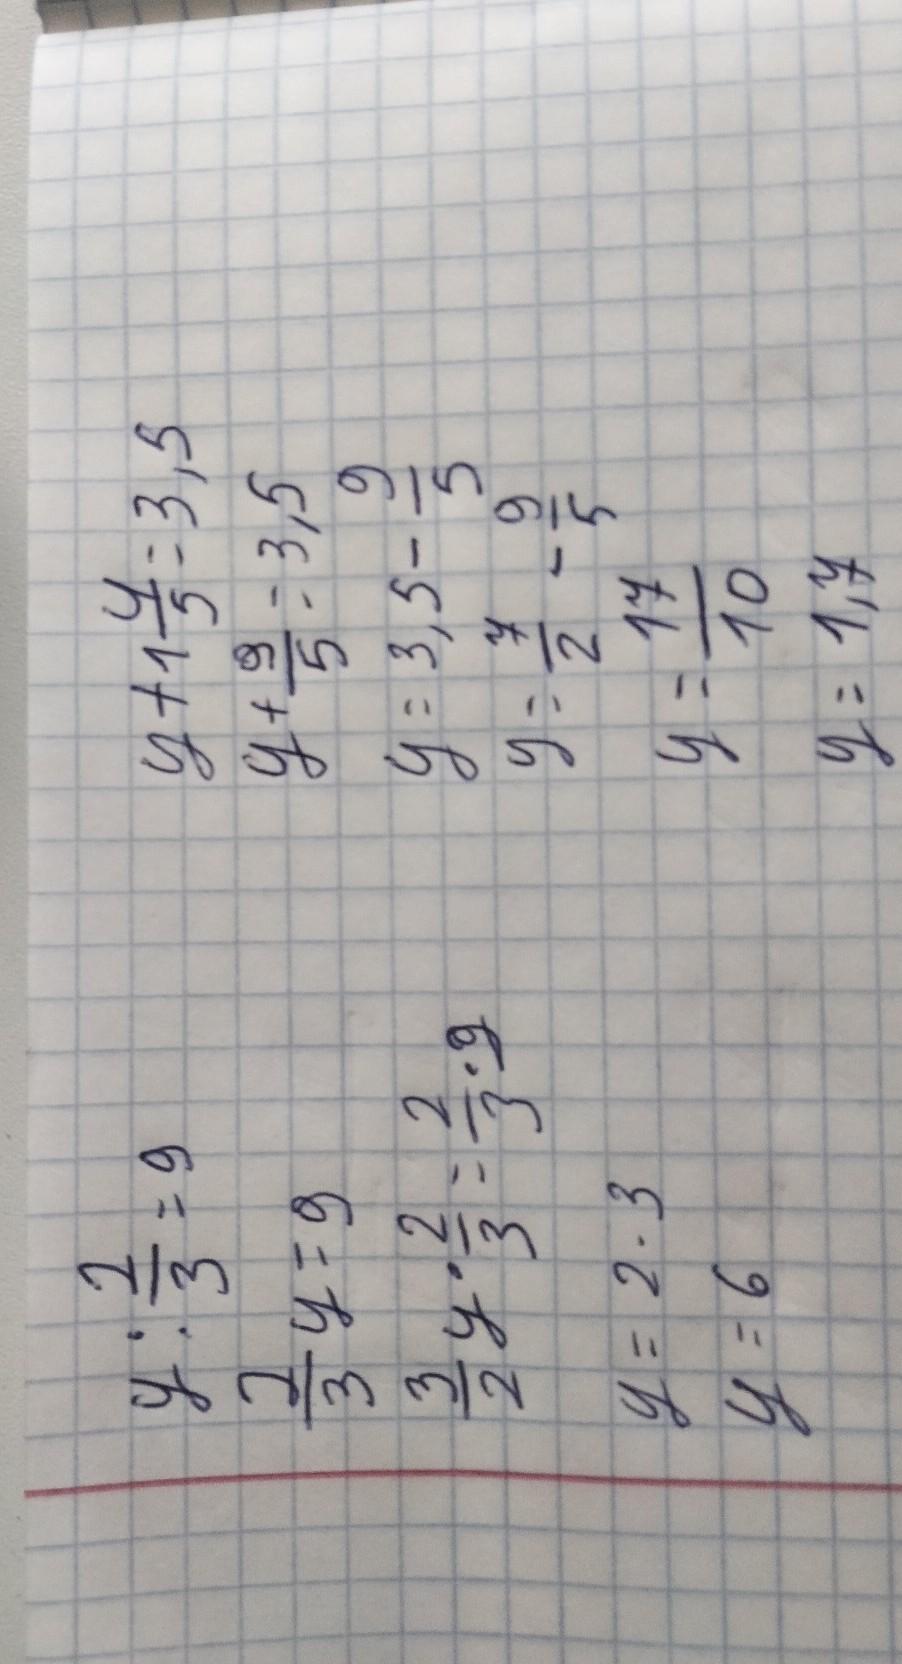 y : 2/3 = 9
2/3 y = 9
3/2 y · 2/3 = 2/3 · 9
y = 2 · 3
y = 6
y + 1 4/5 = 3,5
y + 9/5 = 3,5
y = 3,5 - 9/5
y = 7/2 - 9/5
y = 17/10
y = 1,7